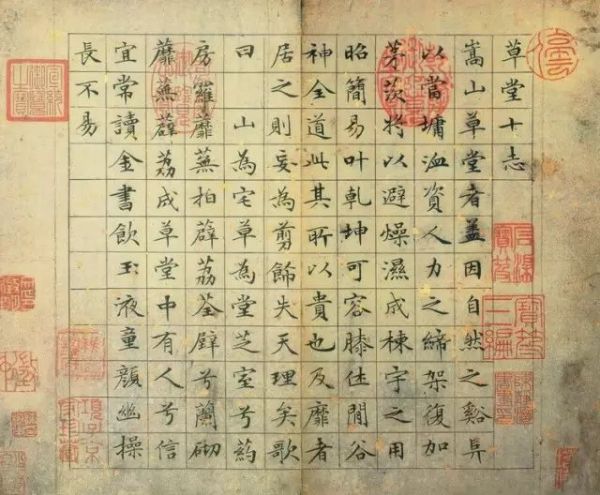 草堂十志
嵩山草堂者盖因自然之谿阜
以當墉洫資人力之締架復加
茅茨將以避燥濕成棟宇之用
昭簡易叶乾坤可容膝休閒谷
神全道此其所以貴也及靡者
居之則妄為剪飾失天理矣歌
曰 山為宅草為堂芝室兮葯
房羅蘼蕪拍薜荔荃壁兮蘭砌
蘼蕪薜荔成草堂中有人兮信
宜常讀金書飲玉液童顏幽操
長不易
寶笈三編
項子京家珍藏